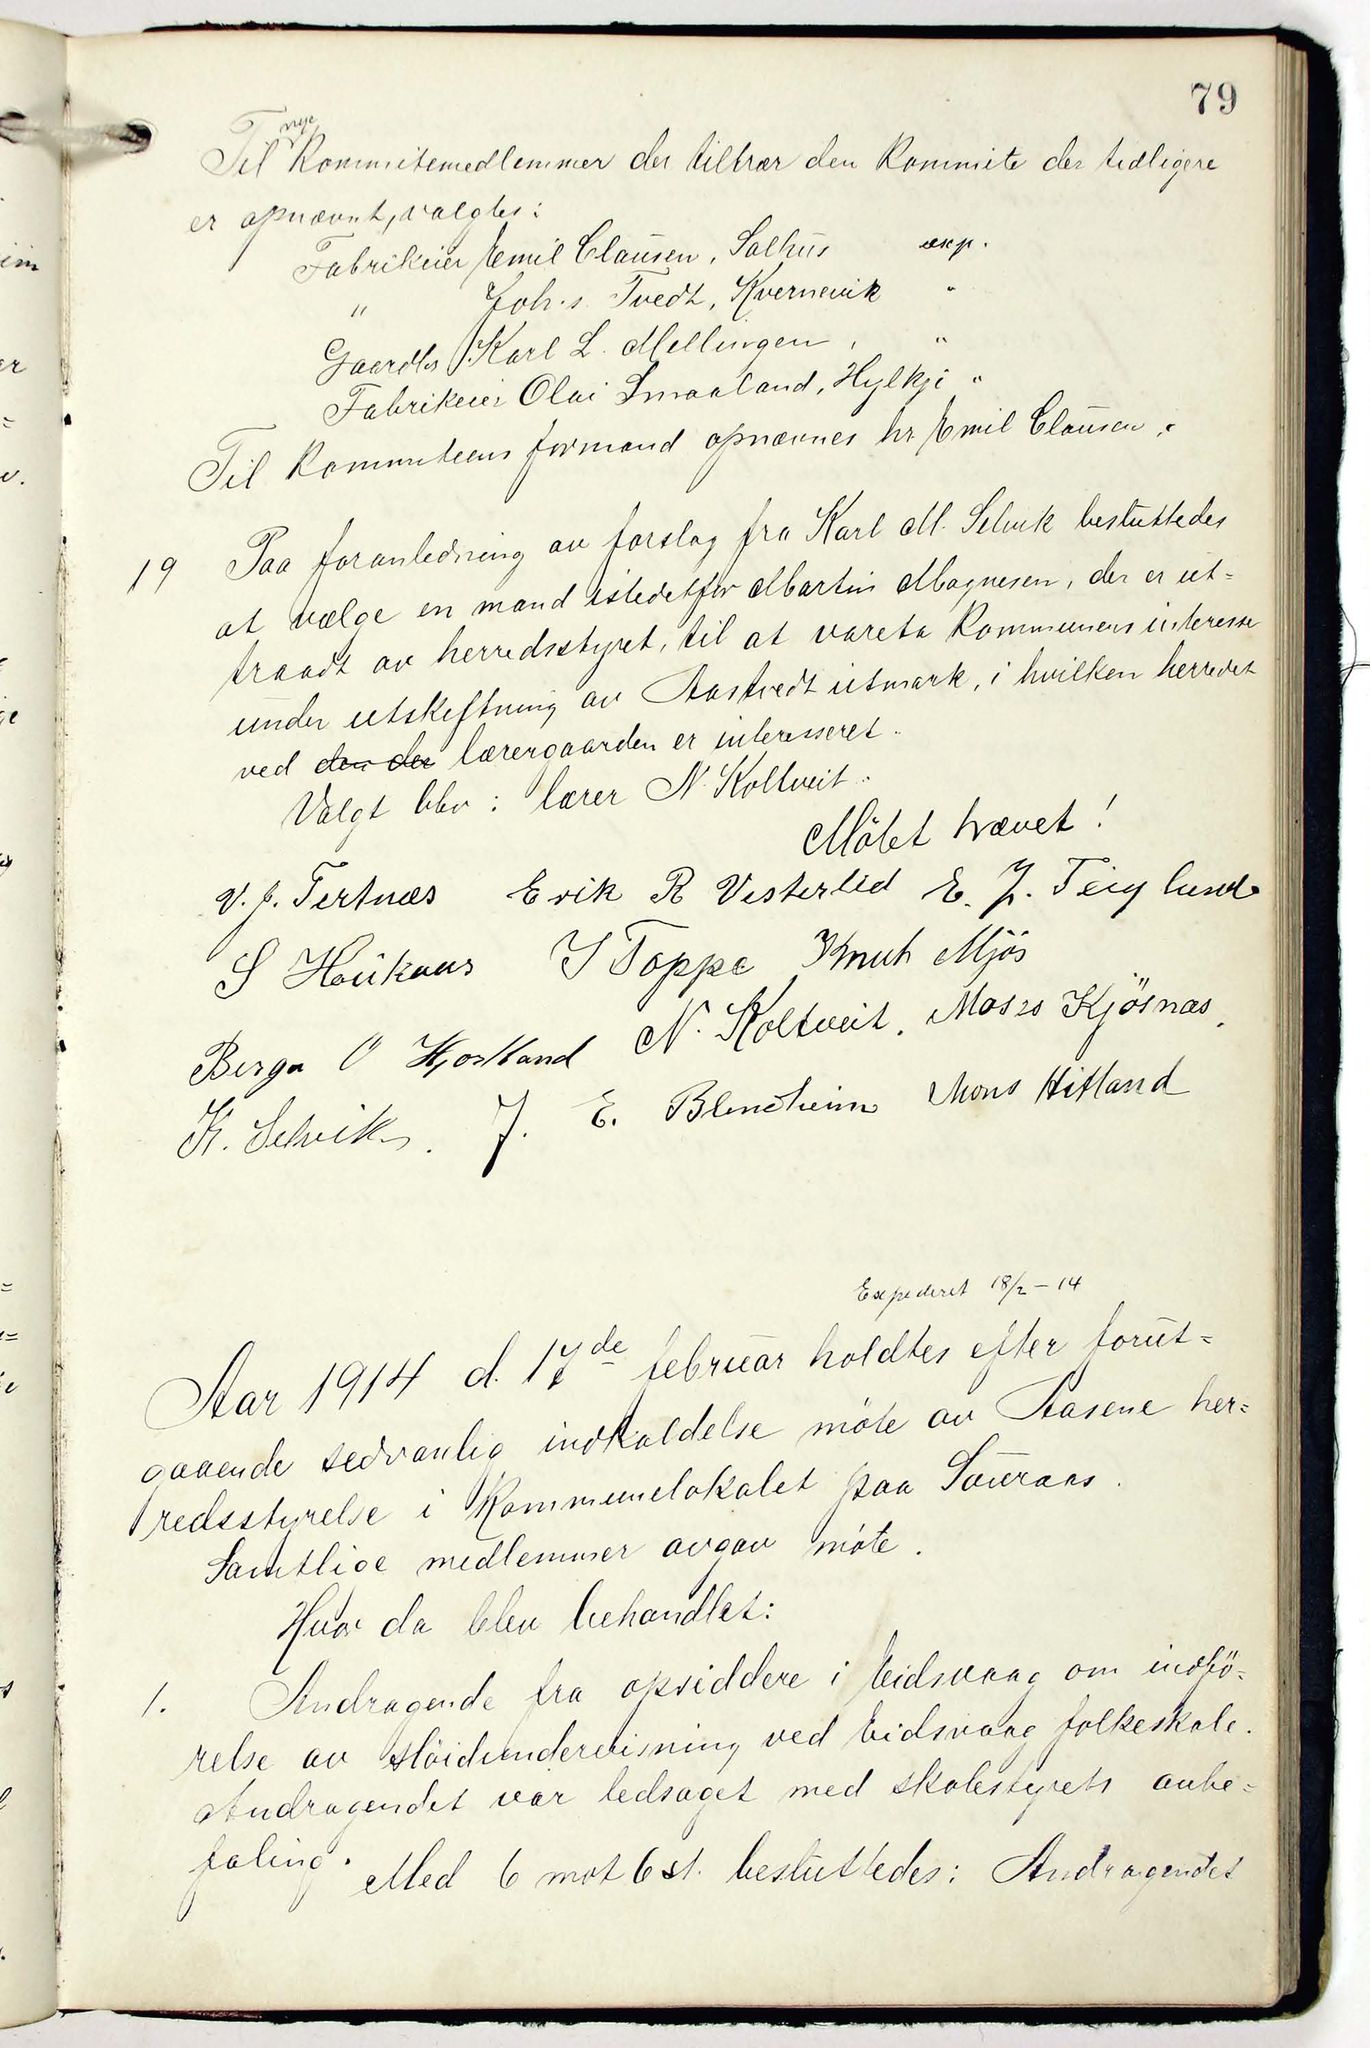 79
Til nye Kommitemedlemmer der tiltrær den Kommite der tidligere
er opnævnt, valgtes:
Fabrikeier Emil Clausen, Salhus exp.
" Johs. Tvedt, Kvernevik "
Gaardbr. Karl L. Mellingen, "
Fabrikeier Olai Smaaland, Hylkje "
Til Kommiteens formand opnævnes hr Emil Clausen.
19 Paa foranledning av forslag fra Karl M. Selvik besluttedes
at vælge en mand istedetfor Martin Magnesen, der er ut=
traadt av herredsstyret, til at vareta Kommunens interesse
under utskiftning av Aastvedt utmark, i hvilken herredet
ved den der lærergaarden er interesseret.
Valgt blev: lærer N. Koltveit.
Mötet hævet!
V. J. Tertnæs Erik R Vesterlid E. J. Teiglund
S Haukaas I Toppe Knut Mjös
Berge O Hjortland N. Koltveit. Moses Kjösnæs.
K. Selvik. J. E. Blindheim Mons Hitland
Expederet 18/2-14
Aar 1914 d. 17de februar holdtes efter forut=
gaaende sedvanlig indkaldelse möte av Aasene her=
redsstyrelse i Kommunelokalet paa Sauraas.
Samtlige medlemmer avgav möte.
Hvor da blev behandlet:
1. Andragende fra opsiddere i Eidsvaag om indfö=
relse av slöidundervisning ved Eidsvaag folkeskole.
Andragendet var ledsaget med skolestyrets anbe=
faling.
Med 6 mot 6 st. besluttedes: Andragendet